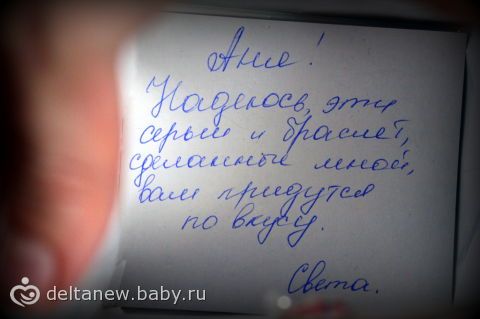 Аня!
Надеюсь, эти
серьги и браслет,
сделанные мной,
вам придутся
по вкусу.
Света.
deltanew.baby.ru